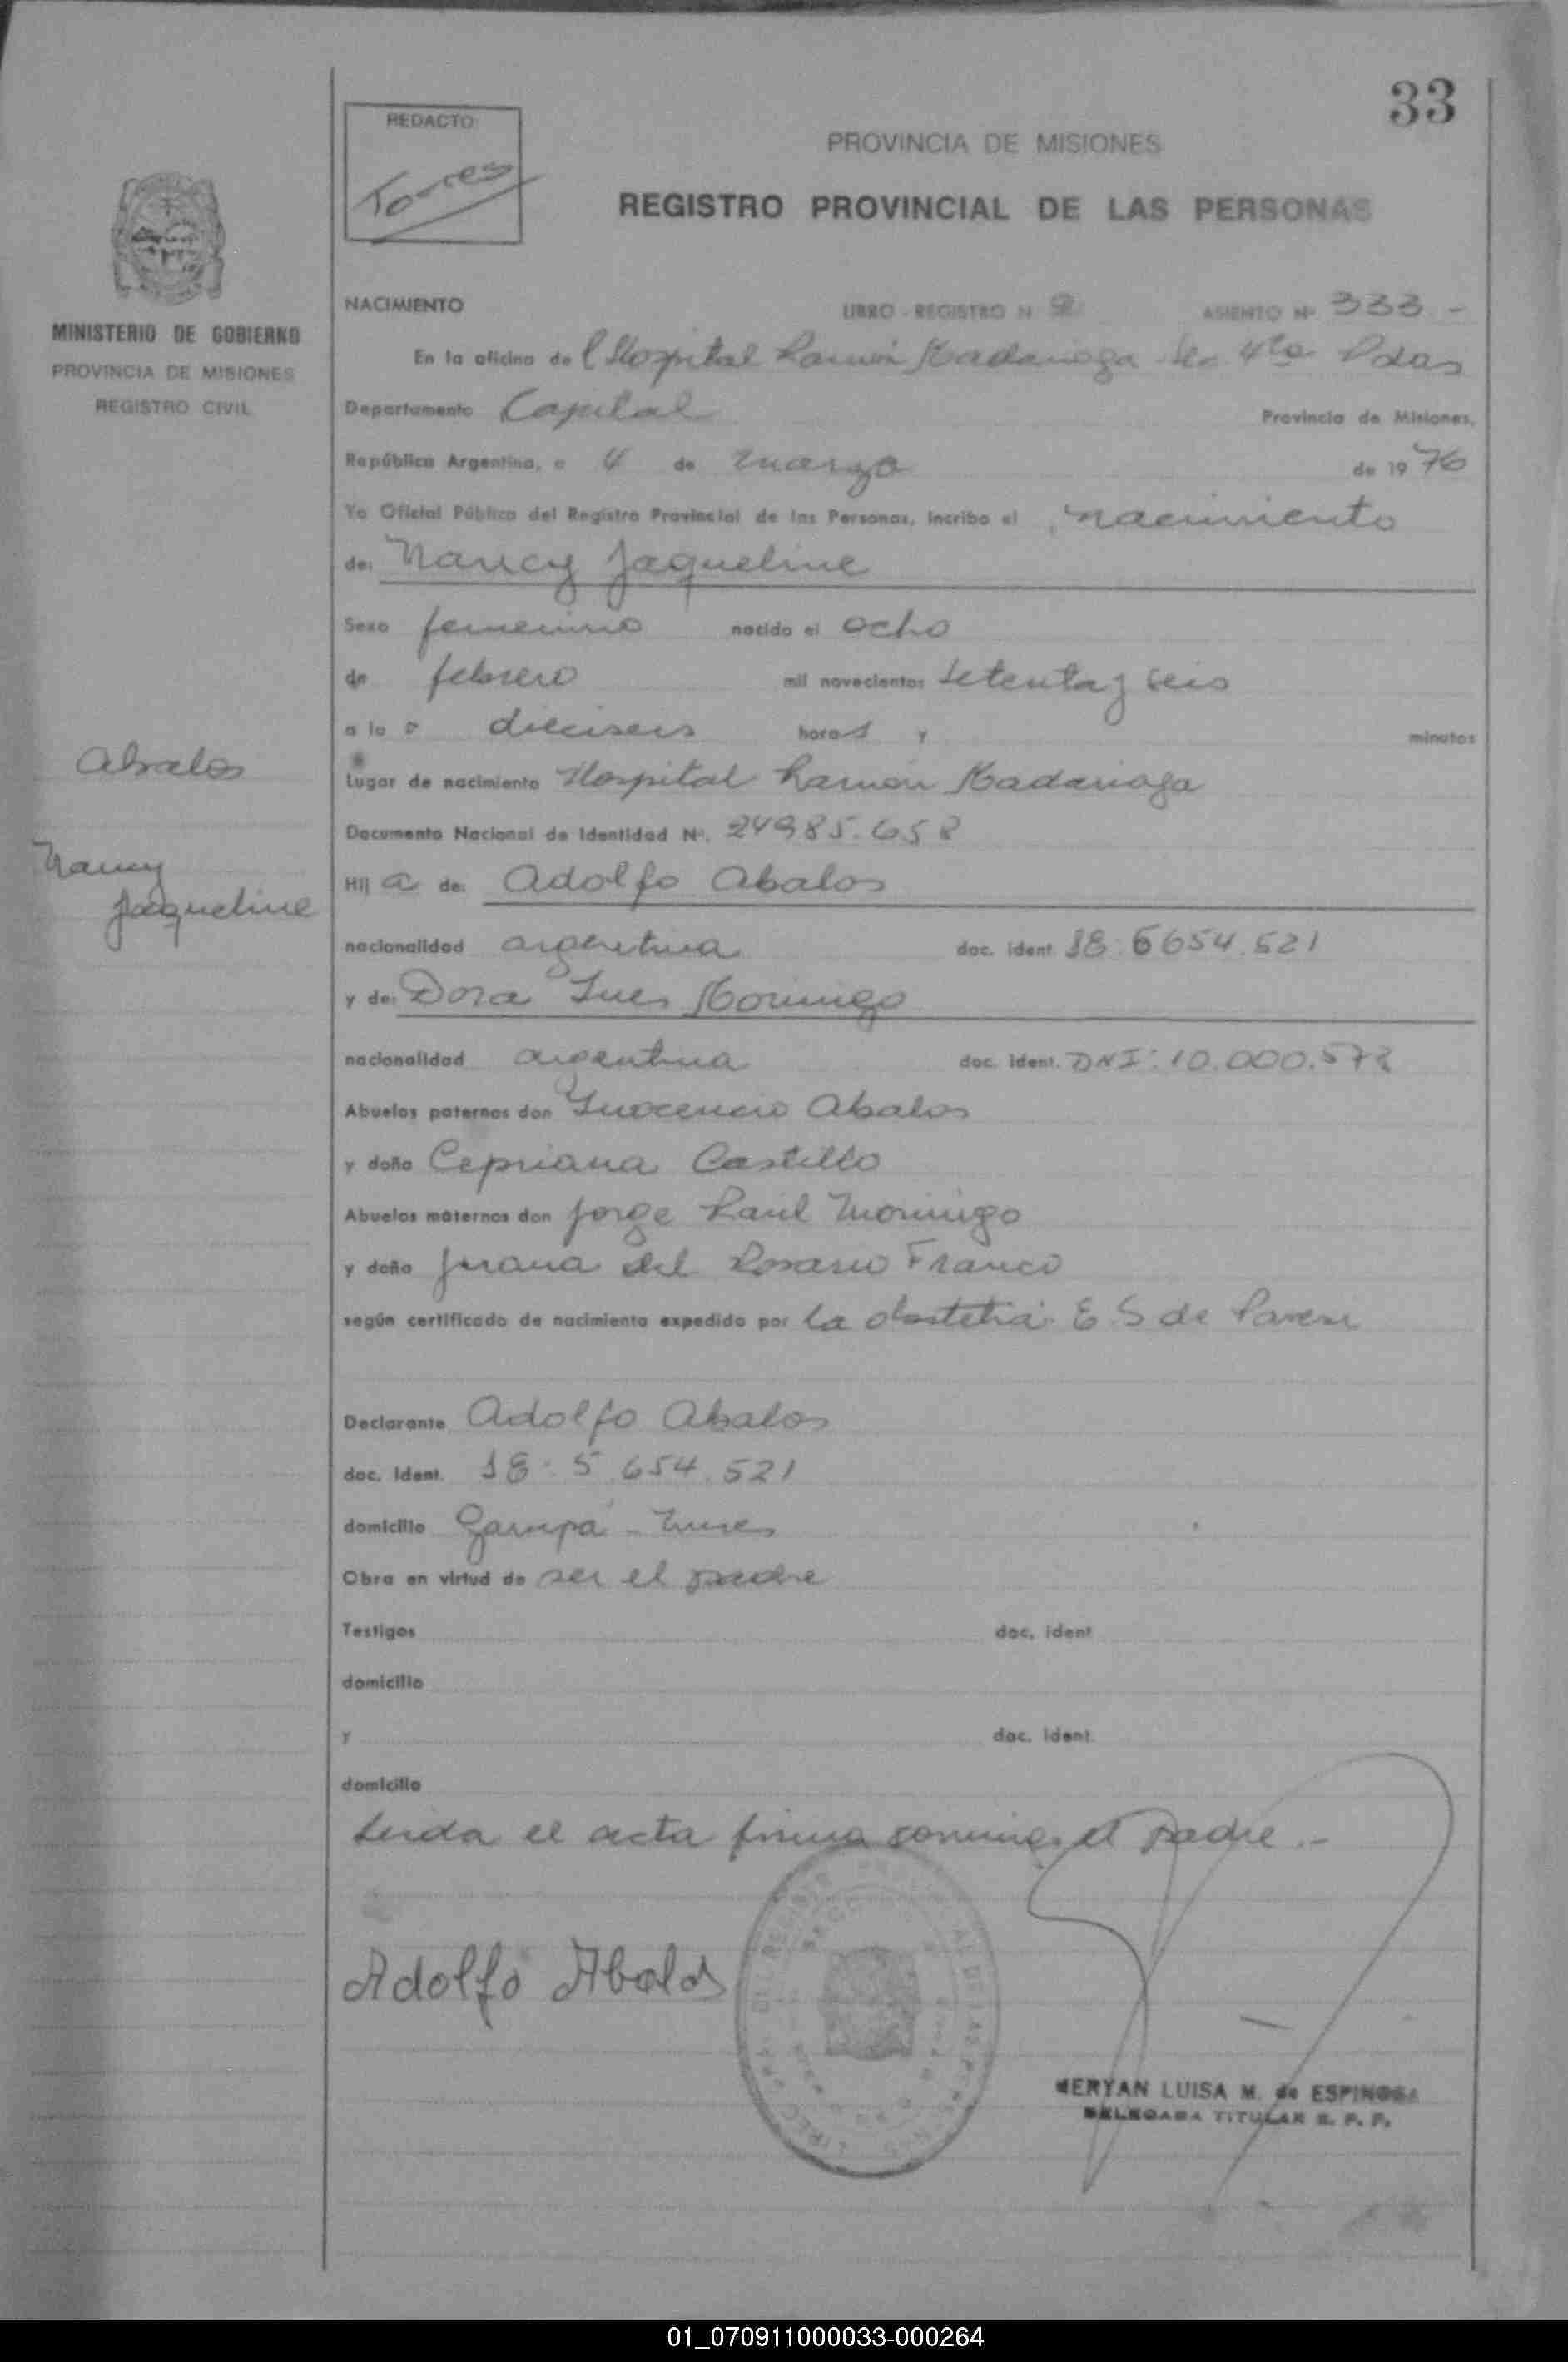 33
REDACTO:
Torres
PROVINCIA DE MISIONES
REGISTRO PROVINCIAL DE LAS PERSONAS
MINISTERIO DE GOBIERNO
PROVINCIA DE MISIONES
REGISTRO CIVIL
NACIMIENTO LIBRO - REGISTRO N 2 ASIENTO Nº 333 -
En la oficina de l Hospital Ramón Madariaga Sec 4ta Pdas
Departamento Capital Provincia de Misiones,
República Argentina, a 4 de marzo de 19 76
Yo Oficial Público del Registro Provincial de las Personas, incribo el nacimiento
de: Nancy Jaqueline
Sexo femenino nacido el ocho
de febrero mil novecientos setenta y seis
a la s dieciseis hora s y minutos
Abalos
Lugar de nacimiento Hospital Ramón Madariaga
Documento Nacional de Identidad Nº. 24985.658
Nancy
Jaqueline
Hij a de: Adolfo Abalos
nacionalidad argentina doc. ident. 18: 5654.521
y de: Dora Ines Moringo
nacionalidad argentina doc. ident. DNI: 10.000.572
Abuelos paternos don Inocencio Abalos
y doña Cepriana Castillo
Abuelos maternos don Jorge Raúl Moringo
y doña Juana del Rosario Franco
según certificado de nacimiento expedido por la obstetra E S de Parese
Declarante Adolfo Abalos
doc. Ident. 18: 5.654.521
domicilio Garupá - Mnes
Obra en virtud de ser el padre
Testigos doc. ident
domicilio
y doc. ident
domicilio
Leida el acta firma conmigo el padre.-
Adolfo Abalos
MERYAN LUISA M. de ESPINOSA
DELEGADA TITULAR R. P. P.
01_070911000033-000264